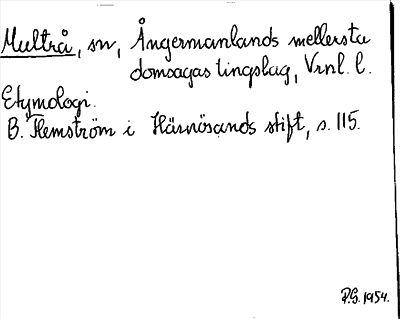 Multrå, sn, Ångermanlands mellersta
domsagas tingslag, Vrnl. l.
Etymologi.
B. Flemström i Härnösands stift, s. 115.
P.G. 1954.